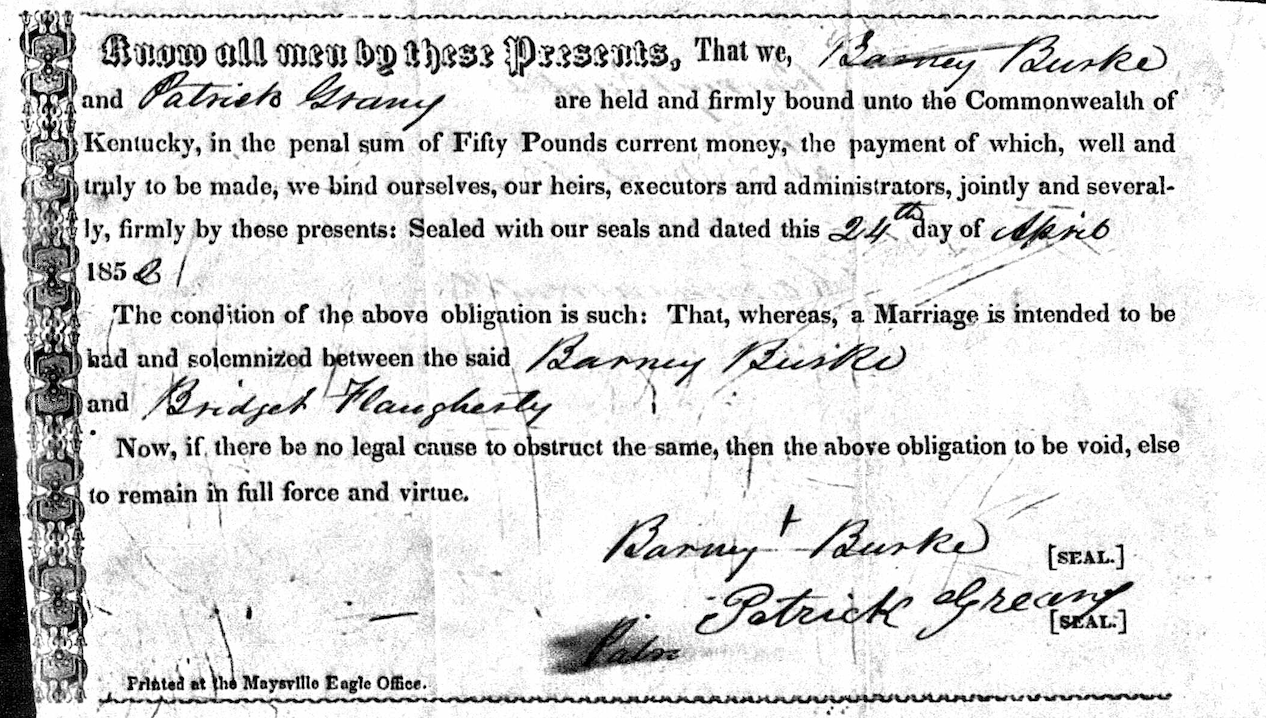 Know all men by these Presents, That we, Barney Burke
and Patrick Grany are held and firmly bound unto the Commonwealth of
Kentucky, in the penal sum of Fifty Pounds current money, the payment of which, well and
truly to be made, we bind ourselves, our heirs, executors and administrators, jointly and several-
ly, firmly by these presents: Sealed with our seals and dated this 24th day of April
185
The condition of the above obligation is such: That, whereas, a Marriage is intended to be
had and solemnized between the said Barney Burke
and Bridget Flaugherty
Now, if there be no legal cause to obstruct the same, then the above obligation to be void, else
to remain in full force and virtue.
Barney + Burke [SEAL.]
Patrick Greany [SEAL.]
Printed at the Maysville Eagle Office.